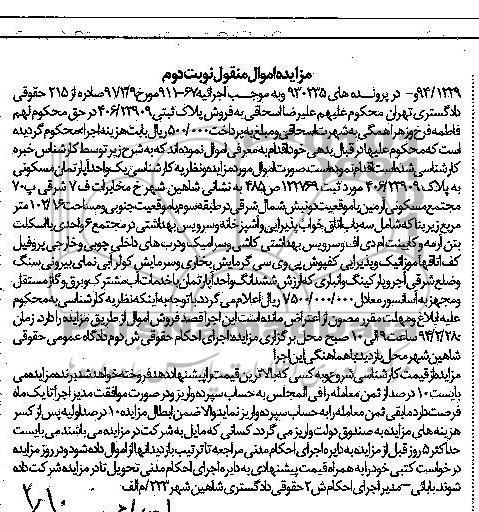 مزایده اموال منقول نوبت دوم
۹۴/۱۲۲۹و- در پرونده های ۹۲۰۲۲۵ وبه موجب اجرائیه ۹۱۱-۶۷مورخ ۹۷/۳/۹ صادره از ۲۱۵ حقوقی
دادگستری تهران محکوم علیهم علیرضا اسحاقی به فروش پلاک ثبتی ۴۰۶/۲۳۹۰۹ در حق محکوم لهم
فاطمه فرخ و زهرا همگی به شهرت اسحاقی ومبلغ به پرداخت ۵۰۰/۰۰۰ ریال بابت هزینه اجرا محکوم گردیده
است که محکوم علیها در قبال بدهی خود اقدام به معرفی اموال نموده اند که به شرح زیر توسط کارشناس خبره
کارشناسی شده است اقدام نموده است صورت اموال مورد مزایده ونظریه کارشناسی یک واحد آپارتمان مسکونی
به پلاک ۴۰۶/۲۳۹۰۹ مورد ثبت ۱۲۲۷۶۹ ص۴۸۵ به نشانی شاهین شهر خ مخابرات ف ۷ شرقی پ۷۰
مجتمع مسکونی آرمین با موقعیت دونبش شمال شرقی در طبقه سوم با موقعیت جنوبی ومساحت ۱۰۲/۱۶ متر
مربع زیربنا که شامل سه باب اتاق خواب پذیرایی و آشپزخانه وسرویس بهداشتی در مجتمع ۶ واحدی با اسکلت
بتن آرمه وکابینت ام دی اف وسرویس بهداشتی کاشی وسرامیک ودرب های داخلی چوبی وخارجی پروفیل
کف اتاقها موزائیک وپذیرایی کفپوش پی وی سی گرمایش بخاری وسرمایش کولر آبی نمای بیرونی سنگ
وضلع شرقی آجر وپارکینگ وانباری که ارزش ششدانگ واحد آپارتمان با خدمات آب مشترک وبرق وگاز مستقل
ومجهز به آسانسور معادل ۷۵۰/۰۰۰/۰۰۰ ریال اعلام می گردد. با توجه به اینکه نظریه کارشناسی به محکوم
علیه ابلاغ ومهلت مقرر مصون از اعتراض مانده است این اجرا قصد فروش اموال از طریق مزایده را دارد. زمان
۹۴/۲/۲۸ ساعت ۹ الی ۱۰ صبح محل برگزاری مزایده اجرای احکام حقوقی ش دوم دادگاه عمومی حقوقی
شاهین شهر محل بازدید با هماهنگی این اجرا
مزایده از قیمت کارشناسی شروع وبه کسی که بالاترین قیمت را پیشنهاد دهد فروخته خواهد شد برنده مزایده می
بایست ۱۰ درصد از ثمن معامله را فی المجلس به حساب سپرده واریز ودر صورت موافقت مدیر اجرا تا یک ماه
فرصت دارد مابقی ثمن معامله را به حساب سپرده واریز نماید والا ضمن ابطال مزایده ۱۰ درصد اولیه پس از کسر
هزینه های مزایده به صندوق دولت واریز می گردد. کسانی که مایل به شرکت در مزایده می باشند می بایست
حداکثر ۵ روز قبل از مزایده به دایره اجرای احکام مدنی مراجعه تا ترتیب بازدید آنها از اموال داده شود و در روز مزایده
درخواست کتبی خود را به همراه قیمت پیشنهادی به دایره اجرای احکام مدنی تحویل تا در مزایده شرکت داده
شوند. بابائی – مدیر اجرای احکام ش ۲ حقوقی دادگستری شاهین شهر ۲۲۳/م الف